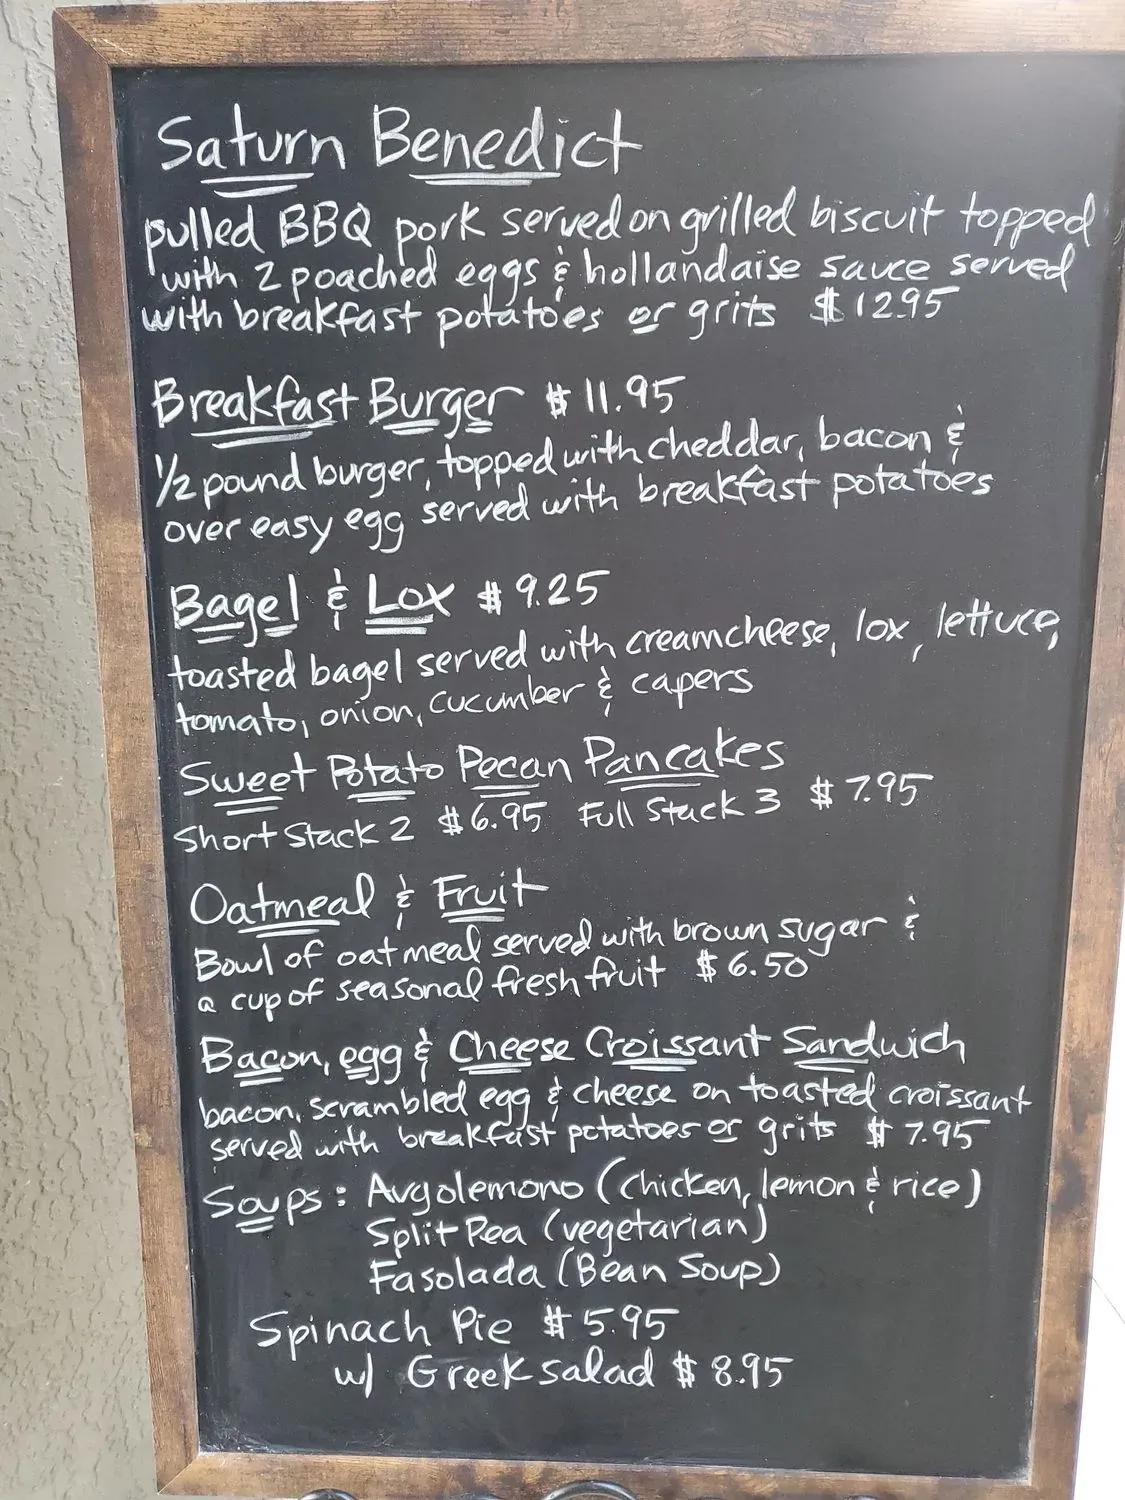 Saturn Benedict
pulled BBQ pork served on grilled biscuit topped
with 2 poached eggs & hollandaise sauce served
with breakfast potatoes or grits $12.95
Breakfast Burger $11.95
1/2 pound burger, topped with cheddar, bacon &
over easy egg served with breakfast potatoes
Bagel & Lox $9.25
toasted bagel served with creamcheese, lox, lettuce,
tomato, onion, cucumber & capers
Sweet Potato Pecan Pancakes
Short Stack 2 $6.95 Full Stack 3 $7.95
Oatmeal & Fruit
Bowl of oatmeal served with brown sugar &
a cup of seasonal fresh fruit $6.50
Bacon, egg & Cheese Croissant Sandwich
bacon, scrambled egg & cheese on toasted croissant
served with breakfast potatoes or grits $7.95
Soups: Avgolemono (chicken, lemon & rice)
Split Pea (vegetarian)
Fasolada (Bean Soup)
Spinach Pie $5.95
w/ Greek salad $8.95